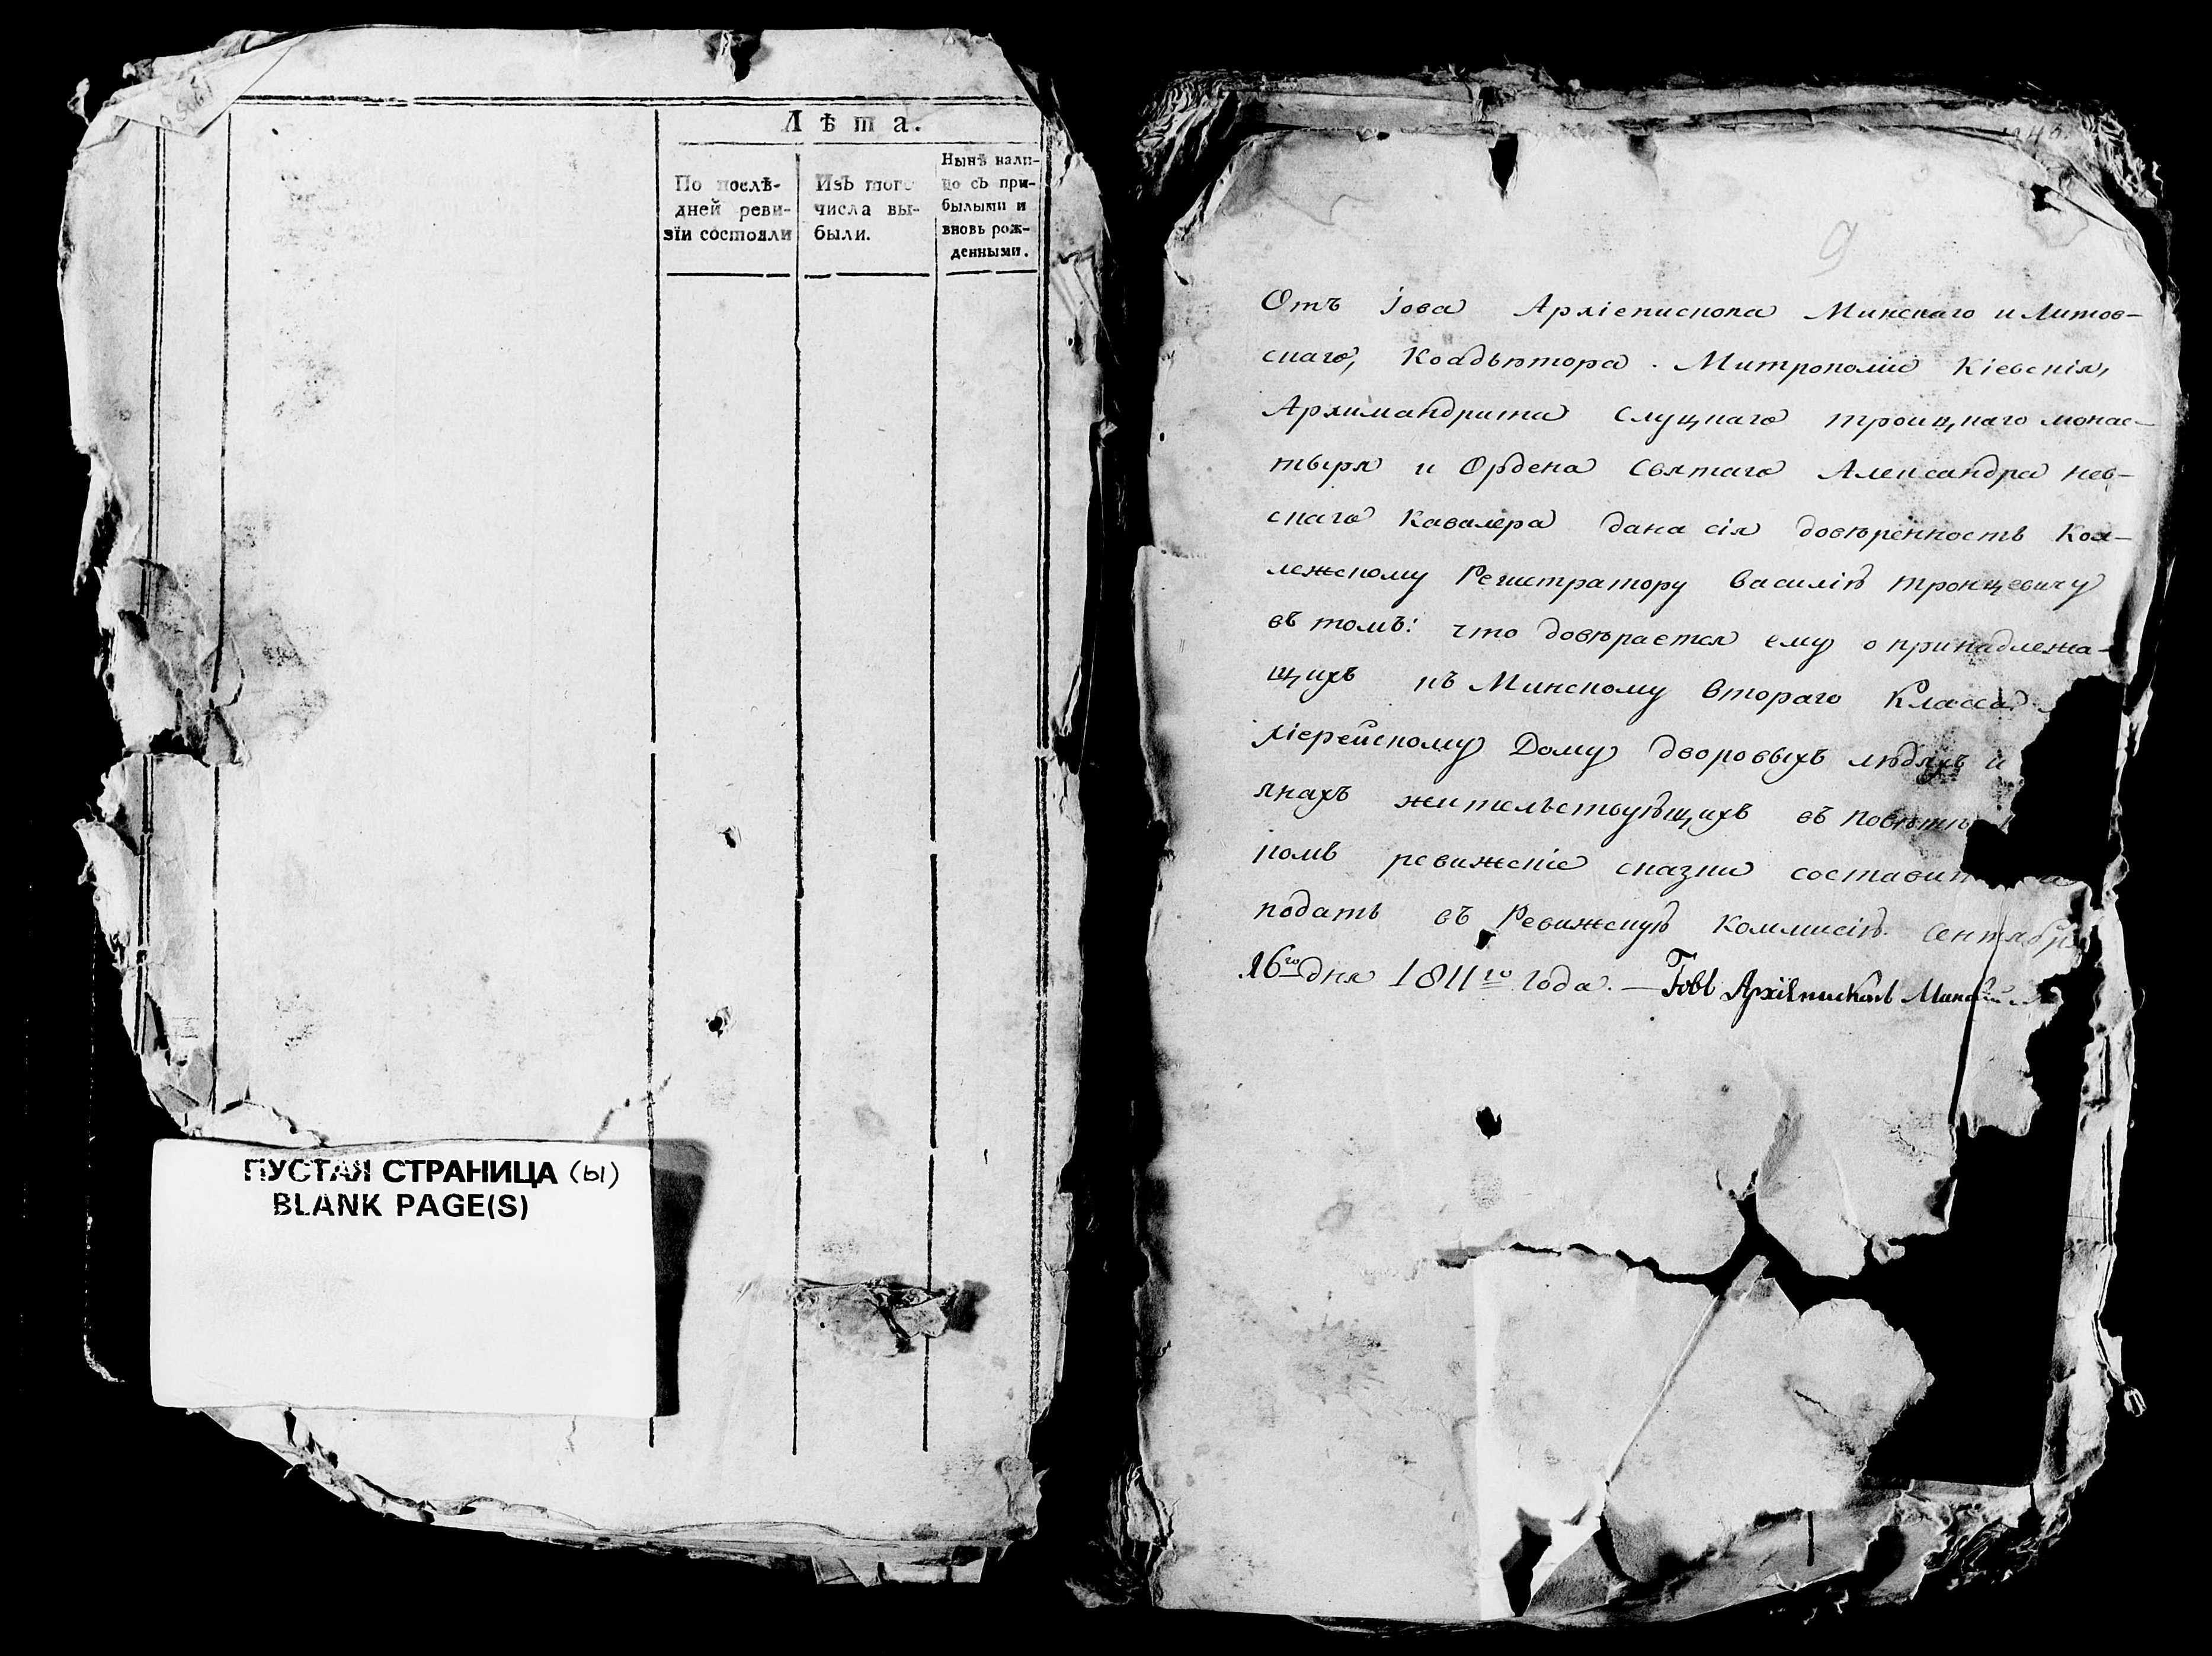 Лѣта.
По послѣ-
дней реви-
зїи состояли
Изъ того
числа вы-
были.
Нынѣ нали-
цо съ при-
былыми и
вновь рож-
денными.
ПУСТАЯ СТРАНИЦА (ы)
BLANK PAGE(S)
9
Отъ Іова Архіепископа Минскаго и Литов-
скаго, Коадъютора Митрополіи Кіевскія,
Архимандрита Слуцкаго троицкаго монас-
тыря и Ордена Святаго Александра Нев-
скаго Кавалера дана сія довѣренность Кол-
лежскому Регистратору Василію Тронцевичу
въ томъ: что довѣрается ему о принадлежа-
щихъ къ Минскому Втораго Класса
хіерейскому Дому дворовыхъ людяхъ и
янахъ жительствующихъ въ Повѣтѣ
комъ ревижскіе сказки составит
подать въ Ревижскую Коммисію. Сентября
16го дня 1811го года. — Іовъ Архіепископъ Минскій